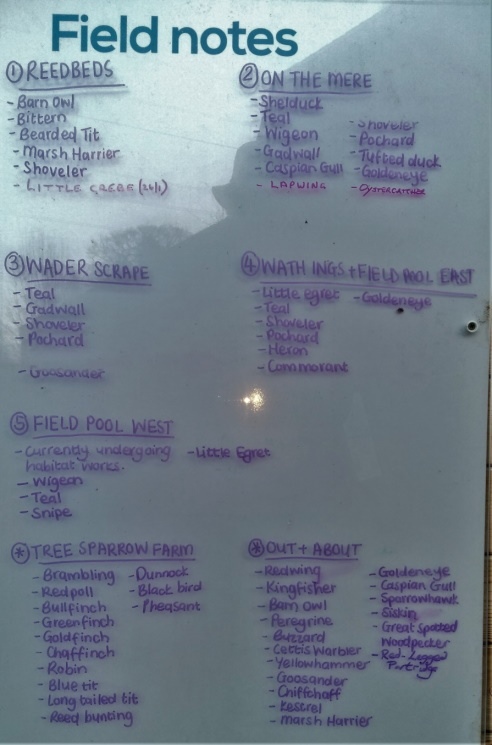 Field notes
① REEDBEDS
- Barn Owl
- Bittern
- Bearded Tit
- Marsh Harrier
- Shoveler
- LITTLE GREBE
② ON THE MERE
- Shelduck
- Teal
- Wigeon
- Gadwall
- Caspian Gull
- LAPWING
- Shoveler
- Pochard
- Tufted duck
- Goldeneye
- OYSTERCATCHER
③ WADER SCRAPE
- Teal
- Gadwall
- Shoveler
- Pochard
- Goosander
④ WATH INGS + FIELD POOL EAST
- Little egret
- Teal
- Shoveler
- Pochard
- Heron
- Commorant
- Goldeneye
⑤ FIELD POOL WEST
- Currently undergoing
habitat works.
- Wigeon
- Teal
- Snipe
- Little Egret
* TREE SPARROW FARM
- Brambling
- Redpoll
- Bullfinch
- Greenfinch
- Goldfinch
- Chaffinch
- Robin
- Blue tit
- Long tailed tit
- Reed bunting
- Dunnock
- Black bird
- Pheasant
* OUT + ABOUT
- Redwing
- Kingfisher
- Barn Owl
- Peregrine
- Buzzard
- Cettis Warbler
- Yellowhammer
- Goosander
- Chiffchaff
- Kestrel
- Marsh Harrier
- Goldeneye
- Caspian Gull
- Sparrowhawk
- Siskin
- Great Spotted
Woodpecker
- Red-Legged
Partridge